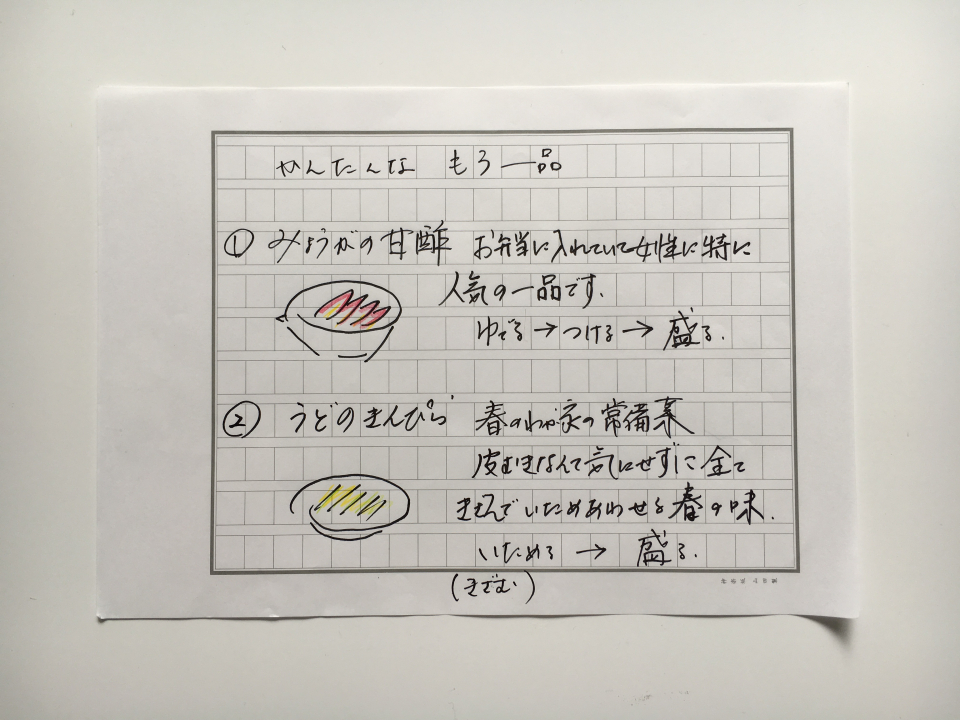 かんたんな もう一品
① みょうがの甘酢 お弁当に入れていて女性に特に
人気の一品です.
ゆでる→つける→ 盛る.
② うどのきんぴら 春のわが家の常備菜
皮むきなんて気にせずに全て
きざんでいためあわせる春の味.
いためる → 盛る.
(きざむ)